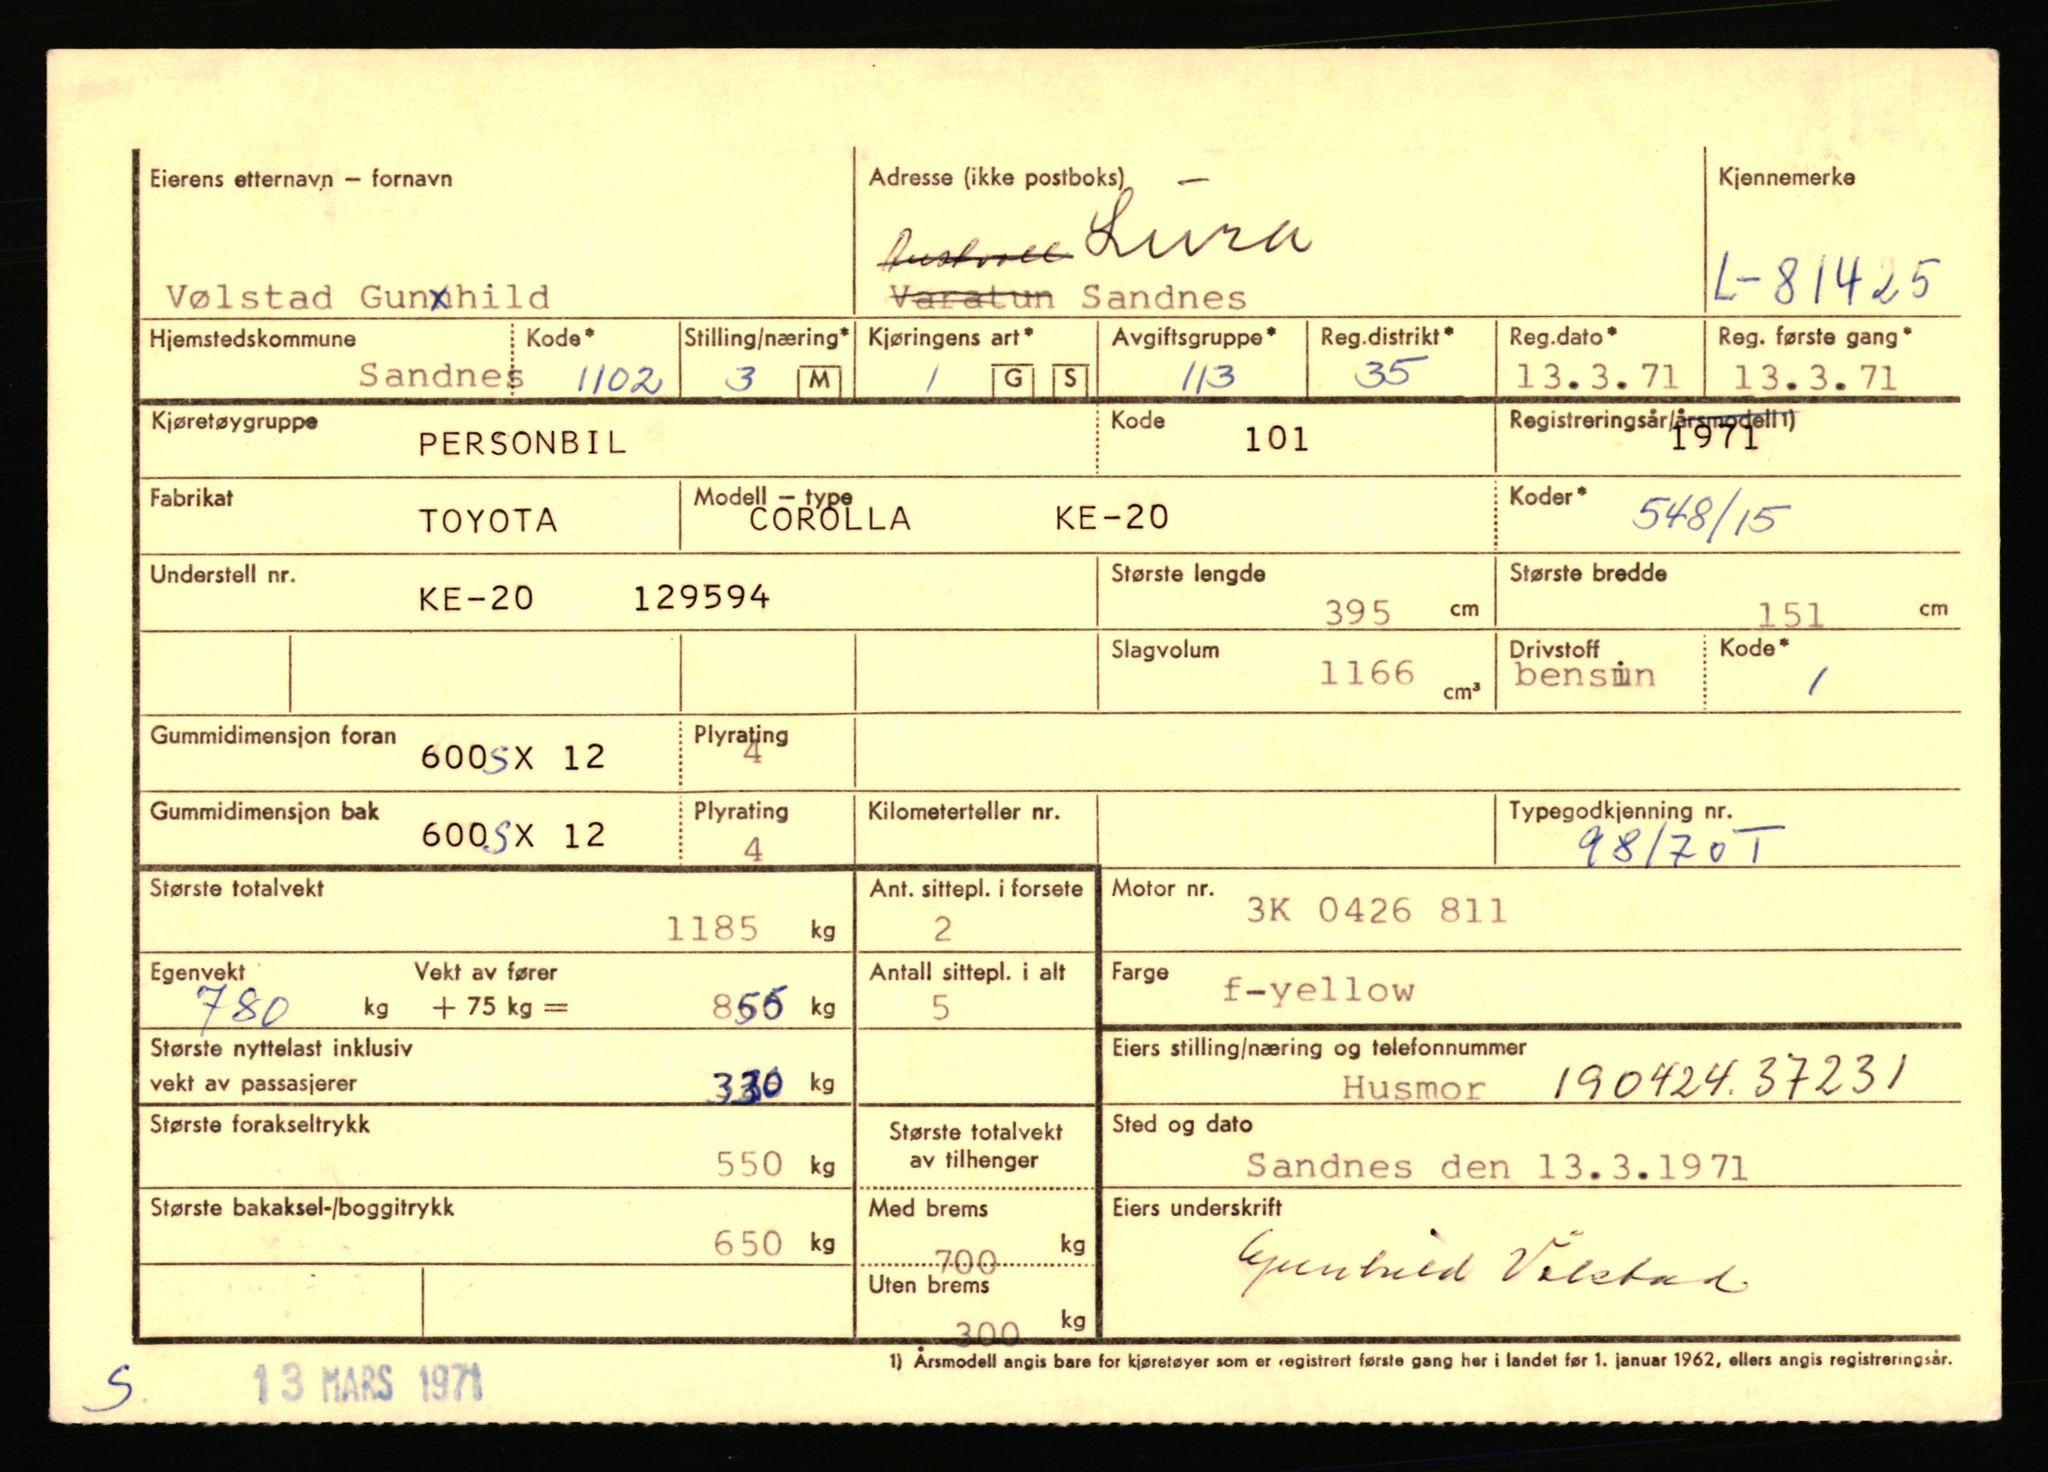 Eierens etternavn – fornavn
Adresse (ikke postboks)
Kjennemerke
Lura
Vølstad Gunhild
Varatun Sandnes
L-81425
Hjemstedskommune
Kode*
Stilling/næring*
Kjøringens art*
Avgiftsgruppe*
Reg.distrikt*
Reg.dato*
Reg. første gang*
Sandnes 1102 3 M 1 G S 113 35 13.3.71 13.3.71
Kjøretøygruppe
PERSONBIL
Kode
101
Registreringsår/årsmodell 1)
1971
Fabrikat
TOYOTA
Modell – type
COROLLA KE-20
Koder*
548/15
Understell nr.
KE-20 129594
Største lengde
395 cm
Største bredde
151 cm
Slagvolum
1166 cm³
Drivstoff
bensin
Kode*
1
Gummidimensjon foran
600S X 12
Plyrating
4
Gummidimensjon bak
600S X 12
Plyrating
4
Kilometerteller nr.
Typegodkjenning nr.
98/70T
Største totalvekt
1185 kg
Ant. sittepl. i forsete
2
Motor nr.
3K 0426 811
Egenvekt
Vekt av fører
780 kg + 75 kg = 855 kg
Antall sittepl. i alt
5
Farge
f-yellow
Største nyttelast inklusiv
vekt av passasjerer
330 kg
Eiers stilling/næring og telefonnummer
Husmor 190424.37231
Største forakseltrykk
550 kg
Største totalvekt
av tilhenger
Sted og dato
Sandnes den 13.3.1971
Største bakaksel-/boggitrykk
650 kg
Med brems
700 kg
Uten brems
300 kg
Eiers underskrift
Gunhild Vølstad
1) Årsmodell angis bare for kjøretøyer som er registrert første gang her i landet før 1. januar 1962, ellers angis registreringsår.
S.
13 MARS 1971